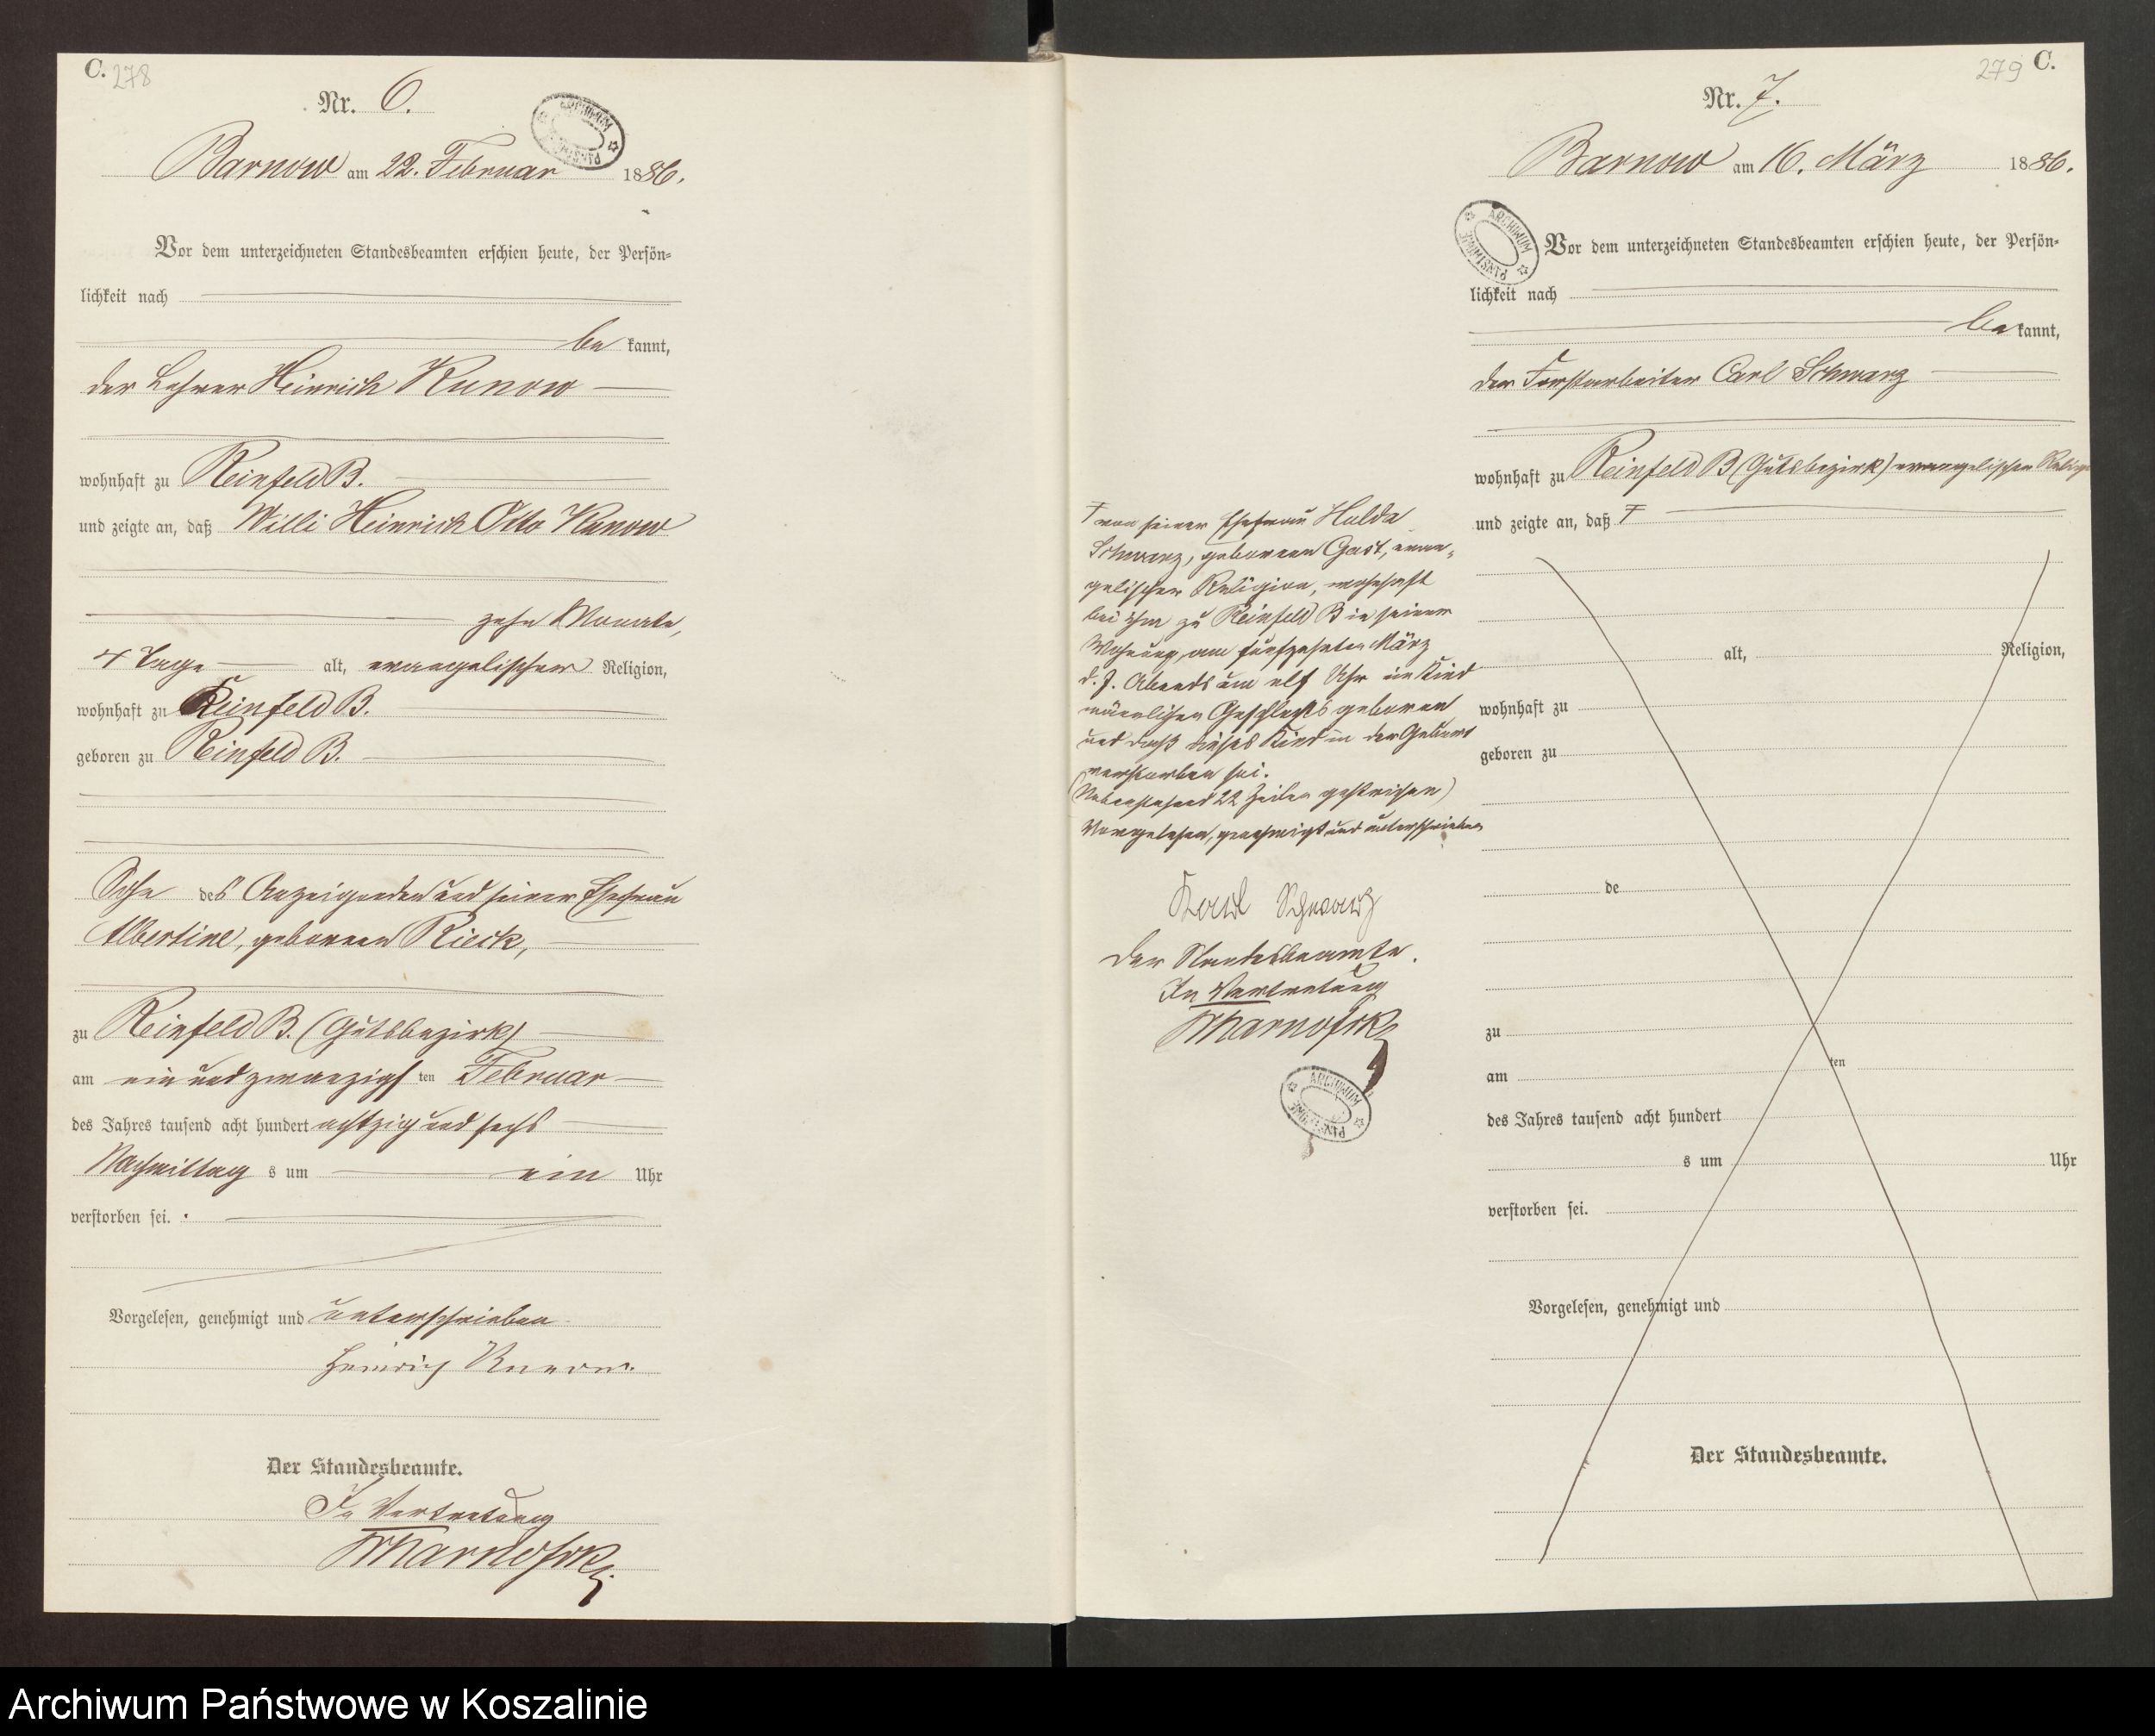 C. 278
Nr. 6.
ARCHIWUM PAŃSTWOWE
Barnow am 22. Februar 1886.
Vor dem unterzeichneten Standesbeamten erschien heute, der Persön-
lichkeit nach
be kannt,
der Lehrer Heinrich Kunow
wohnhaft zu Reinfeld B.
und zeigte an, daß Willi Heinrich Otto Kunow
zehn Monate,
4 Tage alt, evangelischer Religion,
wohnhaft zu Reinfeld B.
geboren zu Reinfeld B.
Sohn des Anzeigenden und seiner Ehefrau
Albertine, geborenen Rieck,
zu Reinfeld B. (Gutsbezirk)
am ein und zwanzigs ten Februar
des Jahres tausend acht hundert achtzig und sechs
Nachmittag s um ein Uhr
verstorben sei.
Vorgelesen, genehmigt und unterschrieben
Heinrich Kunow.
Der Standesbeamte.
In Vertretung
279 C.
Nr. 7.
Barnow am 16. März 1886.
ARCHIWUM PAŃSTWOWE
Vor dem unterzeichneten Standesbeamten erschien heute, der Persön-
lichkeit nach
be kannt,
der Forstarbeiter Carl Schwarz
wohnhaft zu Reinfeld B (Gutsbezirk) evangelischer Religion
und zeigte an, daß Ŧ
Ŧ von seiner Ehefrau Hulda
Schwarz, geborenen Gast, evan-
gelischer Religion, wohnhaft
bei ihm zu Reinfeld B in seiner
Wohnung am fünfzehnten März
d. J. Abends um elf Uhr ein Kind
männlichen Geschlechts geboren
und daß dieses Kind in der Geburt
verstorben sei.
(Nebenstehend 22 Zeilen gestrichen)
Vorgelesen, genehmigt und unterschrieben
Karl Schwarz
Der Standesbeamte.
In Vertretung
ARCHIWUM PAŃSTWOWE
alt, Religion,
wohnhaft zu
geboren zu
de
zu
am ten
des Jahres tausend acht hundert
s um Uhr
verstorben sei.
Vorgelesen, genehmigt und
Der Standesbeamte.
Archiwum Państwowe w Koszalinie